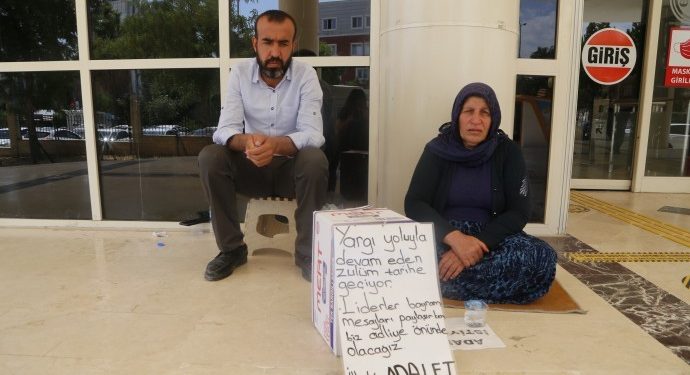 GİRİŞ
MASK
GİRİL
MERT
Yargı yoluyla
devam eden
zulüm tarihe
geçiyor.
Liderler bayram
mesajları paylaşırken
biz adliye önünde
olacağız
ADALET
ADAL